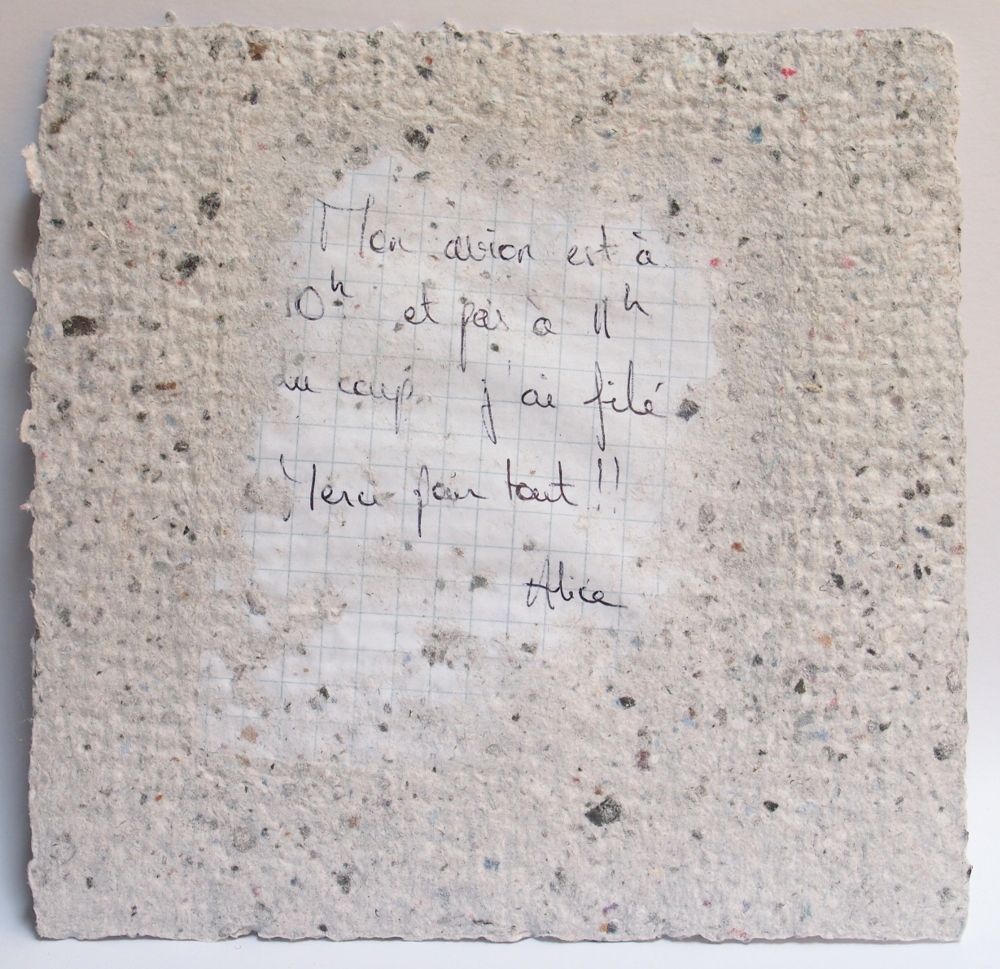 Mon avion est à
10h et pas à 11h
du coup j'ai filé.
Merci pour tout!!
Alice